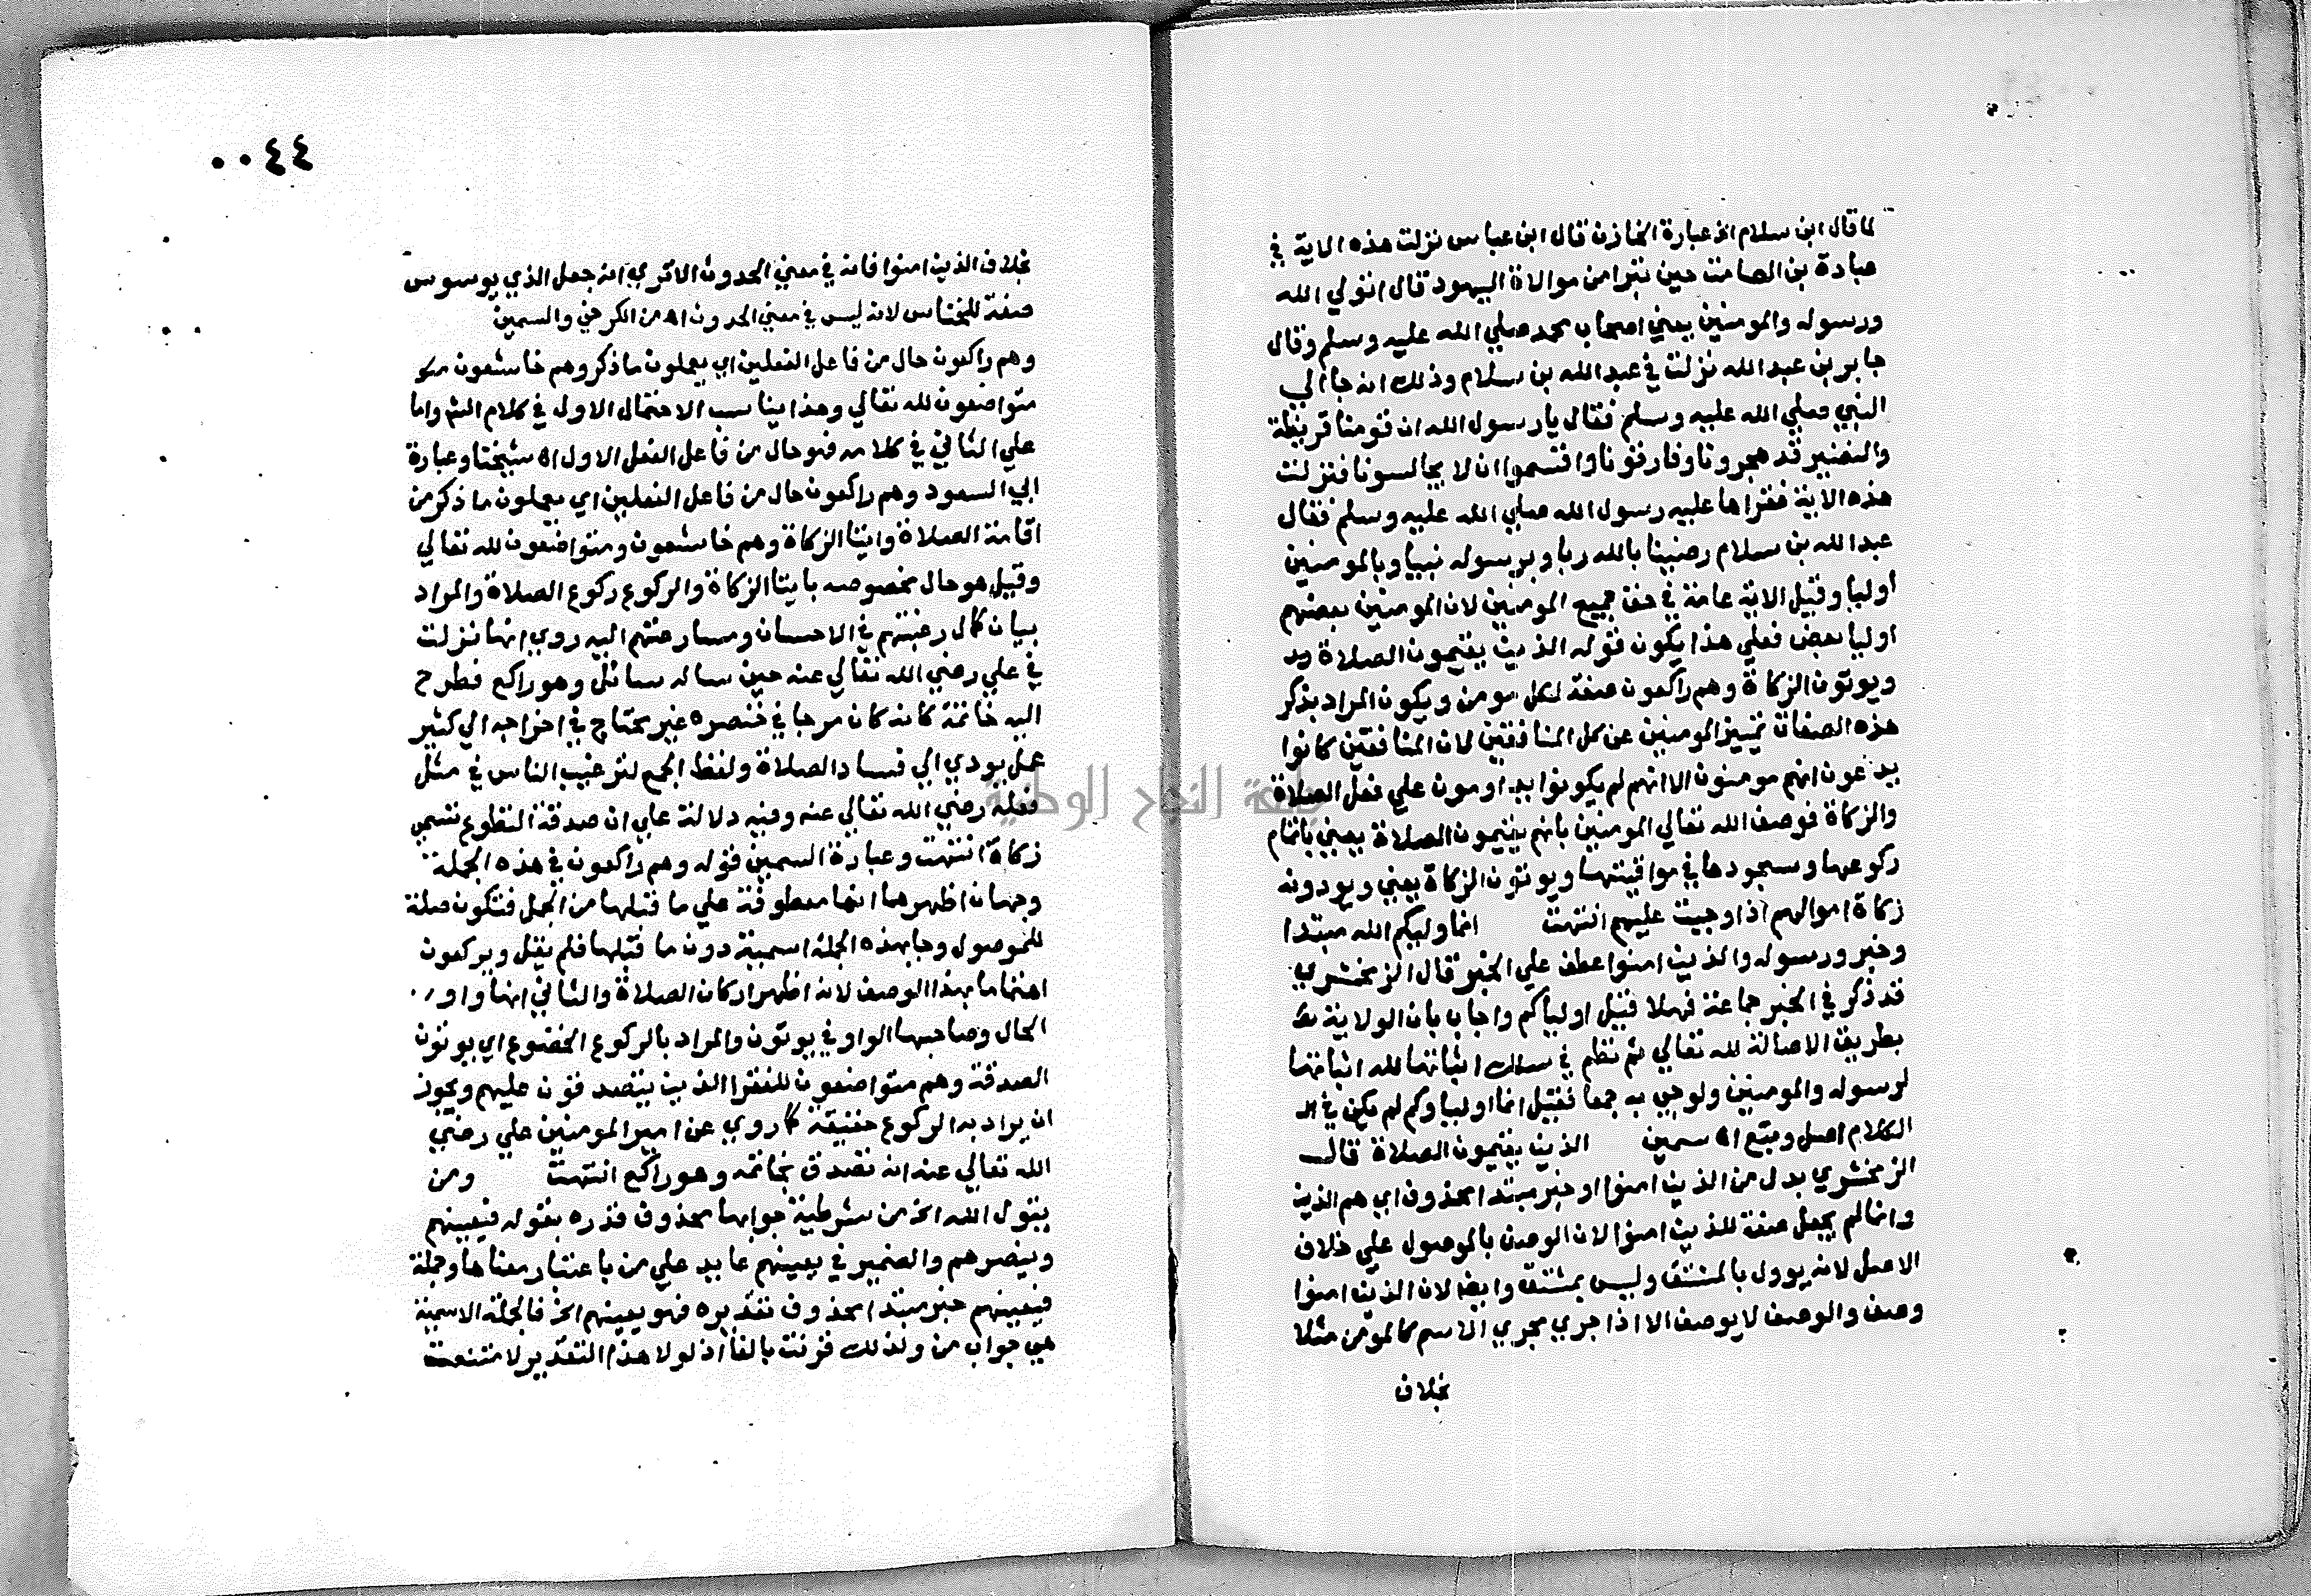 لما قال ابن سلام الخ عبارة الخازن قال ابن عباس نزلت هذه الاية في
عبادة بن الصامت حين تبرا من موالاة اليهود قال اتولي الله
ورسوله والمومنين يعني اصحاب محمد صلي الله عليه وسلم وقال
جابر بن عبد الله نزلت في عبد الله بن سلام وذلك انه جا الي
النبي صلي الله عليه وسلم فقال يا رسول الله ان قومنا قريظة
والنضير قد هجرونا وفارقونا واقسموا ان لا يجالسونا فنزلت
هذه الاية فقراها عليه رسول الله صلي الله عليه وسلم فقال
عبد الله بن سلام رضينا بالله ربا وبرسوله نبيا وبالمومنين
اوليا وقيل الاية عامة في حق جميع المومنين لان المومنين بعضهم
اوليا بعض فعلي هذا يكون قوله الذين يقيمون الصلاة
ويوتون الزكاة وهم راكعون صفة لكل مومن ويكون المراد بذكر
هذه الصفات تمييز المومنين عن كل المنافقين لان المنافقين كانوا
يدعون انهم مومنون الا انهم لم يكونوا يداومون علي فعل الصلاة
والزكاة فوصف الله تعالي المومنين بانهم يقيمون الصلاة يعني باتمام
ركوعها وسجودها في مواقيتها ويوتون الزكاة يعني ويودون
زكاة اموالهم اذا وجبت عليهم انتهت انما وليكم الله مبتدا
وخبر ورسوله والذين امنوا عطف علي الخبر قال الزمخشري
قد ذكر في الخبر جماعة فهلا قيل اولياكم واجاب بان الولاية
بطريق الاصالة لله تعالي ثم نظم في سلك اثباتها لله اثباتها
لرسوله والمومنين ولو جي به جمعا فقيل انما اولياوكم لم يكن في
الكلام اصل وتبع اه سمين الذين يقيمون الصلاة قال
الزمخشري بدل من الذين امنوا او خبر مبتدا محذوف اي هم الذين
وانما لم يجعل صفة للذين امنوا لان الوصف بالموصول علي خلاف
الاصل لانه يوول بالمشتق وليس بمشتق وايضا لان الذين امنوا
وصف والوصف لا يوصف الا اذا جري مجري الاسم كالمومن مثلا
بخلاف
٠٠٤٤
بخلاف الذين امنوا فانه في معني الحدوث الا تري انه جعل الذي يوسوس
صفة للخناس لانه ليس في معني الحدوث اه من الكرخي والسمين
وهم راكعون حال من فاعل الفعلين اي يعملون ما ذكر وهم خاشعون
متواضعون لله تعالي وهذا يناسب الاحتمال الاول في كلام الشم واما
علي الثاني في كلامه فهو حال من فاعل الفعل الاول اه شيخنا وعبارة
ابي السعود وهم راكعون حال من فاعل الفعلين اي يعملون ما ذكر من
اقامة الصلاة وايتا الزكاة وهم خاشعون ومتواضعون لله تعالي
وقيل هو حال مخصوصه بايتا الزكاة والركوع ركوع الصلاة والمراد
بيان كمال رغبتهم في الاحسان ومسارعتهم اليه روي انها نزلت
في علي رضي الله تعالي عنه حين ساله سائل وهو راكع فطرح
اليه خاتمه كانه كان مرجا في خنصره غير محتاج في اخراجه الي كثير
عمل يودي الي فساد الصلاة ولفظ الجمع لترغيب الناس في مثل
فعله رضي الله تعالي عنه وفيه دلالة علي ان صدقة التطوع تسمي
زكاة انتهت وعبارة السمين قوله وهم راكعون في هذه الجملة
وجهان اظهرهما انها معطوفة علي ما قبلها من الجمل فتكون صلة
للموصول وجا بهذه الجملة اسمية دون ما قبلها فلم يقل ويركعون
اهتماما بهذا الوصف لانه اظهر اركان الصلاة والثاني انها واو
الحال وصاحبها الواو في يوتون والمراد بالركوع الخضوع اي يوتون
الصدقة وهم متواضعون للفقرا الذين يتصدقون عليهم ويجوز
ان يراد به الركوع حقيقة كما روي عن امير المومنين علي رضي
الله تعالي عنه انه تصدق بخاتمه وهو راكع انتهت ومن
يتول الله الخ من شرطية جوابها محذوف قدره بقوله فيعينهم
وينصرهم والضمير في يعينهم عايد علي من باعتبار معناها وجملة
فيعينهم خبر مبتدا محذوف تقديره فهو يعينهم الخ فالجملة الاسمية
هي جواب من ولذلك قرنت بالفا اذ لولا هذا التقدير لامتنعت
جامعة النجاح الوطنية